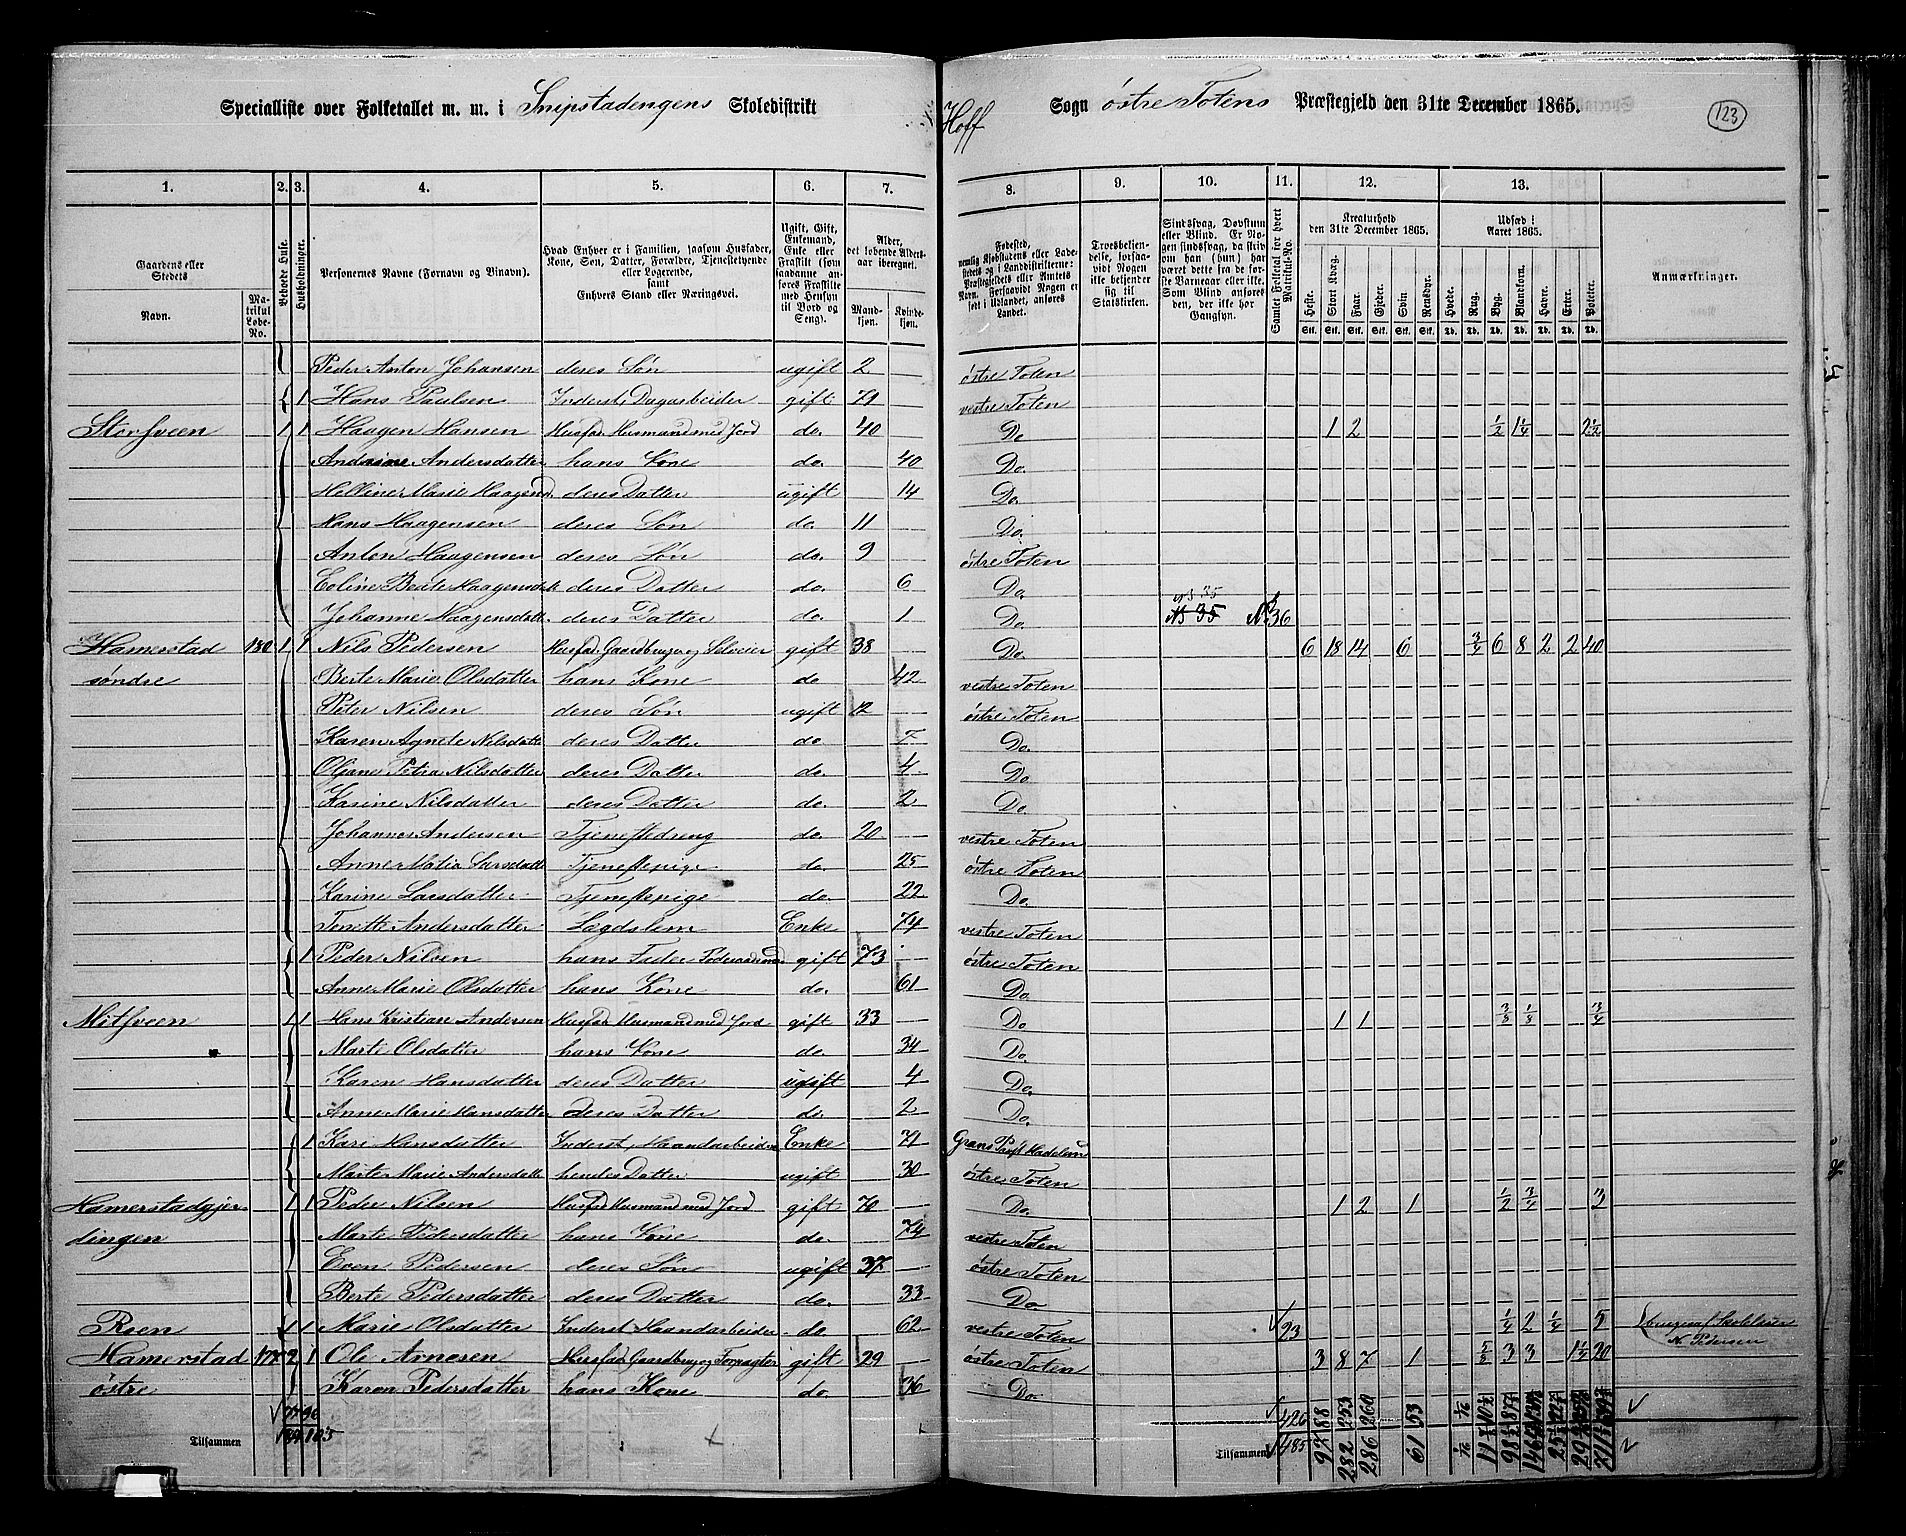 Specialliste over Folketallet m. m. i Snipstadengens Skoledistrikt Hoff Sogn østre Totens Præstegjeld den 31te December 1865.
123
1. 2. 3. 4. 5. 6. 7. 8. 9. 10. 11. 12. 13.
Gaardens eller Stedets Navn. Matrikul Løbe-No.
Beboede Huse.
Husholdninger.
Personernes Navne (Fornavn og Tilnavn).
Hvad Enhver er i Familien, saasom Husfader, Kone, Søn, Datter, Forældre, Tjenestetyende eller Logerende, samt Enhvers Stand eller Næringsvei.
Ugift, Gift, Enkemand, Enke eller Fraskilt (som saadanne anføres Fraskilte med Hensyn til Bord og Seng).
Alder, det løbende Aldersaar iberegnet. Mandkjøn. Kvindekjøn.
Anmærkninger.
Peder Anton Johansen deres Søn ugift 2 østre Toten
1 Hans Paulsen Inderst, Dagarbeider gift 71 vestre Toten
Storsveen 1 1 Haagen Hansen Husfad. Husmand med Jord do. 40 Do 1 2 1/2 1 1/4 2 1/2
Andrine Andersdatter hans Kone do. 40 Do.
Helline Marie Haagensd. deres Datter ugift 14 Do.
Hans Haagensen deres Søn do. 11 Do.
Anton Haagensen deres Søn do 9 østre Toten
Eoline Beate Haagensdatt deres Datter do. 6 Do.
Johanne Haagensdatt. deres Datter do. 1 Do. N 35 N 36
Hamerstad 180 1 1 Nils Pedersen Husfad. Gaardbruger og Selveier gift 38 Do. 6 18 14 6 3/4 6 8 2 2 40
søndre Berte Marie Olsdatter hans Kone do 42 vestre Toten
Peter Nilsen deres Søn ugift 12 østre Toten
Karen Agnete Nilsdatte deres Datter do 7 Do.
Oleane Petra Nilsdatter deres Datter do. 4 Do.
Karine Nilsdatter deres Datter do. 2 Do.
Johannes Andersen Tjenestedreng do 20 vestre Toten
Anne Matia Larsdatt Tjenestepige do 25 østre Toten
Karine Larsdatter Tjenestepige do. 22 Do.
Tenette Andersdatter Lægdslem Enke 74 vestre Toten
1 Peder Nilsen hans Fader Føderaadsmand gift 73 østre Toten
Anne Marie Olsdatter hans Kone do. 61 Do
Mitsveen 1 1 Hans Kristian Andersen Husfad. Husmand med Jord gift 33 Do 1 1 3/8 1/8 3/4
Marte Olsdatter hans Kone do. 34 Do.
Karen Hansdatter deres Datter ugift 4 Do.
Anne Marie Hansdatte deres Datter do. 2 Do.
1 Kari Hansdatter Inderst, Haandarbeider Enke 71 Grans Præst Hadeland
Marte Marie Andersdatt hendes Datter ugift 30 østre Toten
Hamerstadgjer- 1 1 Peder Nilsen Husfad. Husmand med Jord gift 70 Do. 1 2 1 1/2 3/4 3
dingen Marte Pedersdatter hans Kone do. 74 vestre Toten
Even Pedersen deres Søn ugift 37 østre Toten
Berte Pedersdatter deres Datter do. 33 Do
Roen 1 1 Marie Olsdatter Inderst Haandarbeider do 62 vestre Toten 23 1/4 2 1/4 5 N. Pedersen
Hamerstad 177 2 1 Ole Arnesen Husfad. Gaardbrug. og Forpagter gift 29 østre Toten 3 8 7 1 5/8 3 3 1 1/4 30
østre Karen Pedersdatter hans Kone do. 36 Do.
426 88 253 260 53
Tilsammen 105 Tilsammen 485 97 282 286 61